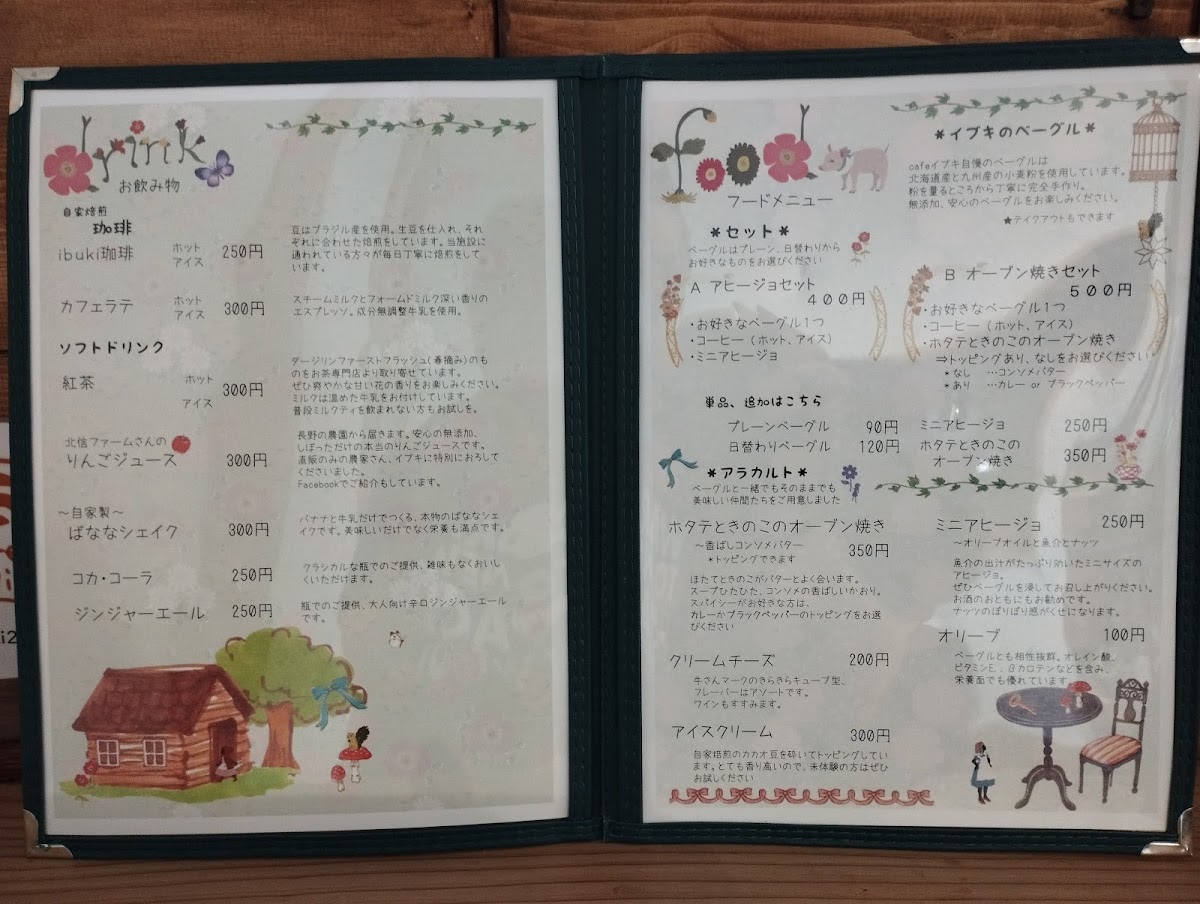 drink
お飲み物
自家焙煎
珈琲
ibuki珈琲
ホット
アイス
250円
豆はブラジル産を使用。生豆を仕入れ、それ
ぞれに合わせた焙煎をしています。当施設に
通われている方々が毎日丁寧に焙煎をして
います。
カフェラテ
ホット
アイス
300円
スチームミルクとフォームドミルク深い香りの
エスプレッソ。成分無調整牛乳を使用。
ソフトドリンク
紅茶
ホット
アイス
300円
ダージリンファーストフラッシュ(春摘み)のも
のをお茶専門店より取り寄せています。
ぜひ爽やかな甘い花の香りをお楽しみください。
ミルクは温めた牛乳をお付けしています。
普段ミルクティを飲まれない方もお試しを。
北信ファームさんの
りんごジュース
300円
長野の農園から届きます。安心の無添加、
しぼっただけの本当のりんごジュースです。
直販のみの農家さん、イブキに特別におろして
くださいました。
Facebookでご紹介もしています。
〜自家製〜
ばななシェイク
300円
バナナと牛乳だけでつくる、本物のばななシェ
イクです。美味しいだけでなく栄養も満点です。
コカ・コーラ
250円
クラシカルな瓶でのご提供、雑味もなくおいし
くいただけます。
ジンジャーエール
250円
瓶でのご提供、大人向け辛口ジンジャーエール
です。
food
フードメニュー
＊イブキのベーグル＊
cafeイブキ自慢のベーグルは
北海道産と九州産の小麦粉を使用しています。
粉を量るところから丁寧に完全手作り。
無添加、安心のベーグルをお楽しみください。
★テイクアウトもできます
＊セット＊
ベーグルはプレーン、日替わりから
お好きなものをお選びください
A アヒージョセット
400円
・お好きなベーグル1つ
・コーヒー（ホット、アイス）
・ミニアヒージョ
B オーブン焼きセット
500円
・お好きなベーグル1つ
・コーヒー（ホット、アイス）
・ホタテときのこのオーブン焼き
⇒トッピングあり、なしをお選びください
＊なし …コンソメバター
＊あり …カレー or ブラックペッパー
単品、追加はこちら
プレーンベーグル 90円
日替わりベーグル 120円
ミニアヒージョ 250円
ホタテときのこの
オーブン焼き 350円
＊アラカルト＊
ベーグルと一緒でもそのままでも
美味しい仲間たちをご用意しました
ホタテときのこのオーブン焼き
〜香ばしコンソメバター 350円
＊トッピングできます
ほたてときのこがバターとよく合います。
スープひたひた、コンソメの香ばしいかおり。
スパイシーがお好きな方は、
カレーかブラックペッパーのトッピングをお選
びください
クリームチーズ 200円
牛さんマークのきらきらキューブ型、
フレーバーはアソートです。
ワインもすすみます。
アイスクリーム 300円
自家焙煎のカカオ豆を砕いてトッピングしてい
ます。とても香り高いので、未体験の方はぜひ
お試しください
ミニアヒージョ 250円
〜オリーブオイルと魚介とナッツ
魚介の出汁がたっぷり効いたミニサイズの
アヒージョ。
ぜひベーグルを浸してお召し上がりください。
お酒のおともにもお勧めです。
ナッツのぽりぽり感がくせになります。
オリーブ 100円
ベーグルとも相性抜群。オレイン酸、
ビタミンE、βカロテンなどを含み、
栄養面でも優れています。